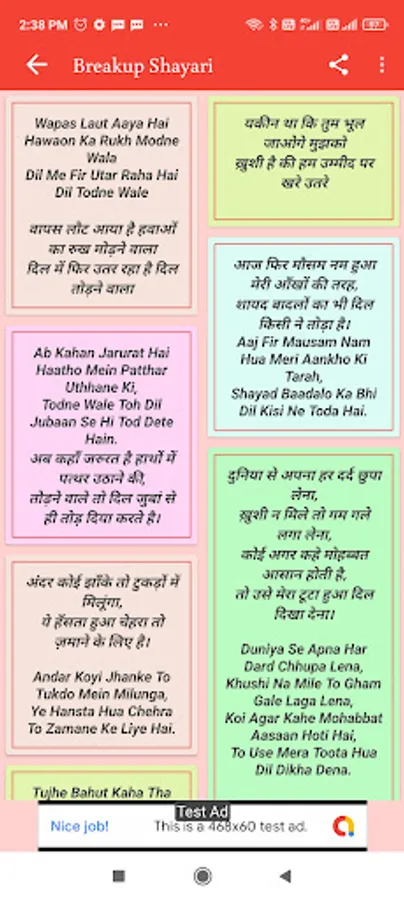 2:38 PM
Breakup Shayari
Wapas Laut Aaya Hai
Hawaon Ka Rukh Modne
Wala
Dil Me Fir Utar Raha Hai
Dil Todne Wale
वापस लौट आया है हवाओं
का रुख मोड़ने वाला
दिल में फिर उतर रहा है दिल
तोड़ने वाला
Ab Kahan Jarurat Hai
Haatho Mein Patthar
Uthhane Ki,
Todne Wale Toh Dil
Jubaan Se Hi Tod Dete
Hain.
अब कहाँ जरूरत है हाथों में
पत्थर उठाने की,
तोड़ने वाले तो दिल जुबां से
ही तोड़ दिया करते है।
अंदर कोई झाँके तो टुकड़ों में
मिलूंगा,
ये हँसता हुआ चेहरा तो
ज़माने के लिए है।
Andar Koyi Jhanke To
Tukdo Mein Milunga,
Ye Hansta Hua Chehra
To Zamane Ke Liye Hai.
Tujhe Bahut Kaha Tha
यकीन था कि तुम भूल
जाओगे मुझको
ख़ुशी है की हम उम्मीद पर
खरे उतरे
आज फिर मौसम नम हुआ
मेरी आँखों की तरह,
शायद बादलों का भी दिल
किसी ने तोड़ा है।
Aaj Fir Mausam Nam
Hua Meri Aankho Ki
Tarah,
Shayad Baadalo Ka Bhi
Dil Kisi Ne Toda Hai.
दुनिया से अपना हर दर्द छुपा
लेना,
ख़ुशी न मिले तो गम गले
लगा लेना,
कोई अगर कहे मोहब्बत
आसान होती है,
तो उसे मेरा टूटा हुआ दिल
दिखा देना।
Duniya Se Apna Har
Dard Chhupa Lena,
Khushi Na Mile To Gham
Gale Laga Lena,
Koi Agar Kahe Mohabbat
Aasaan Hoti Hai,
To Use Mera Toota Hua
Dil Dikha Dena.
Test Ad
Nice job!
This is a 468x60 test ad.